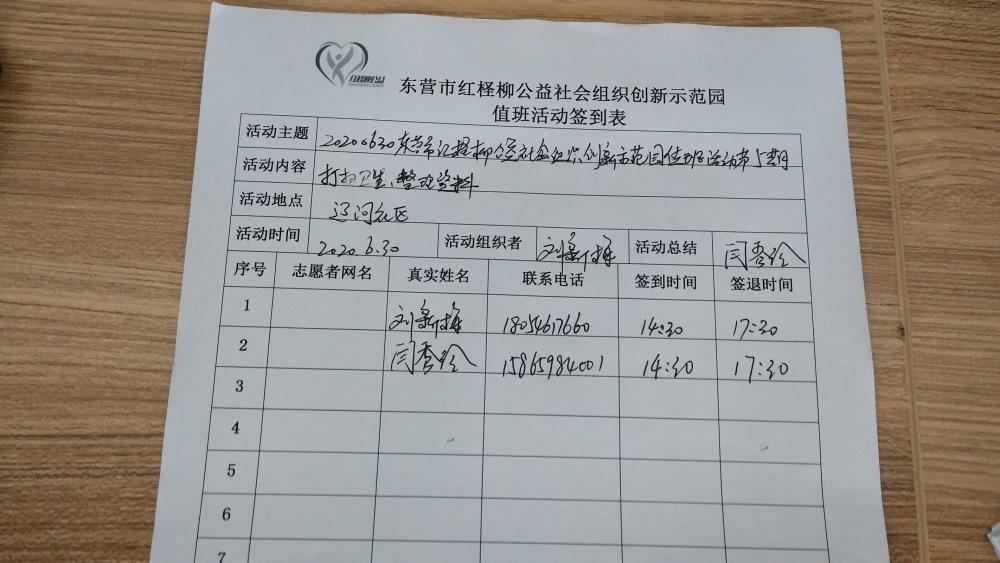 红柽柳公益
东营市红柽柳公益社会组织创新示范园
值班活动签到表
活动主题 20200630东营市红柽柳公益社会组织创新示范园值班活动第5期
活动内容 打扫卫生、整理资料
活动地点 辽河社区
活动时间 2020.6.30 活动组织者 刘新梅 活动总结 闫秀玲
序号 志愿者网名 真实姓名 联系电话 签到时间 签退时间
1 刘新梅 18054617660 14:30 17:30
2 闫秀玲 15865984001 14:30 17:30
3
4
5
6
7